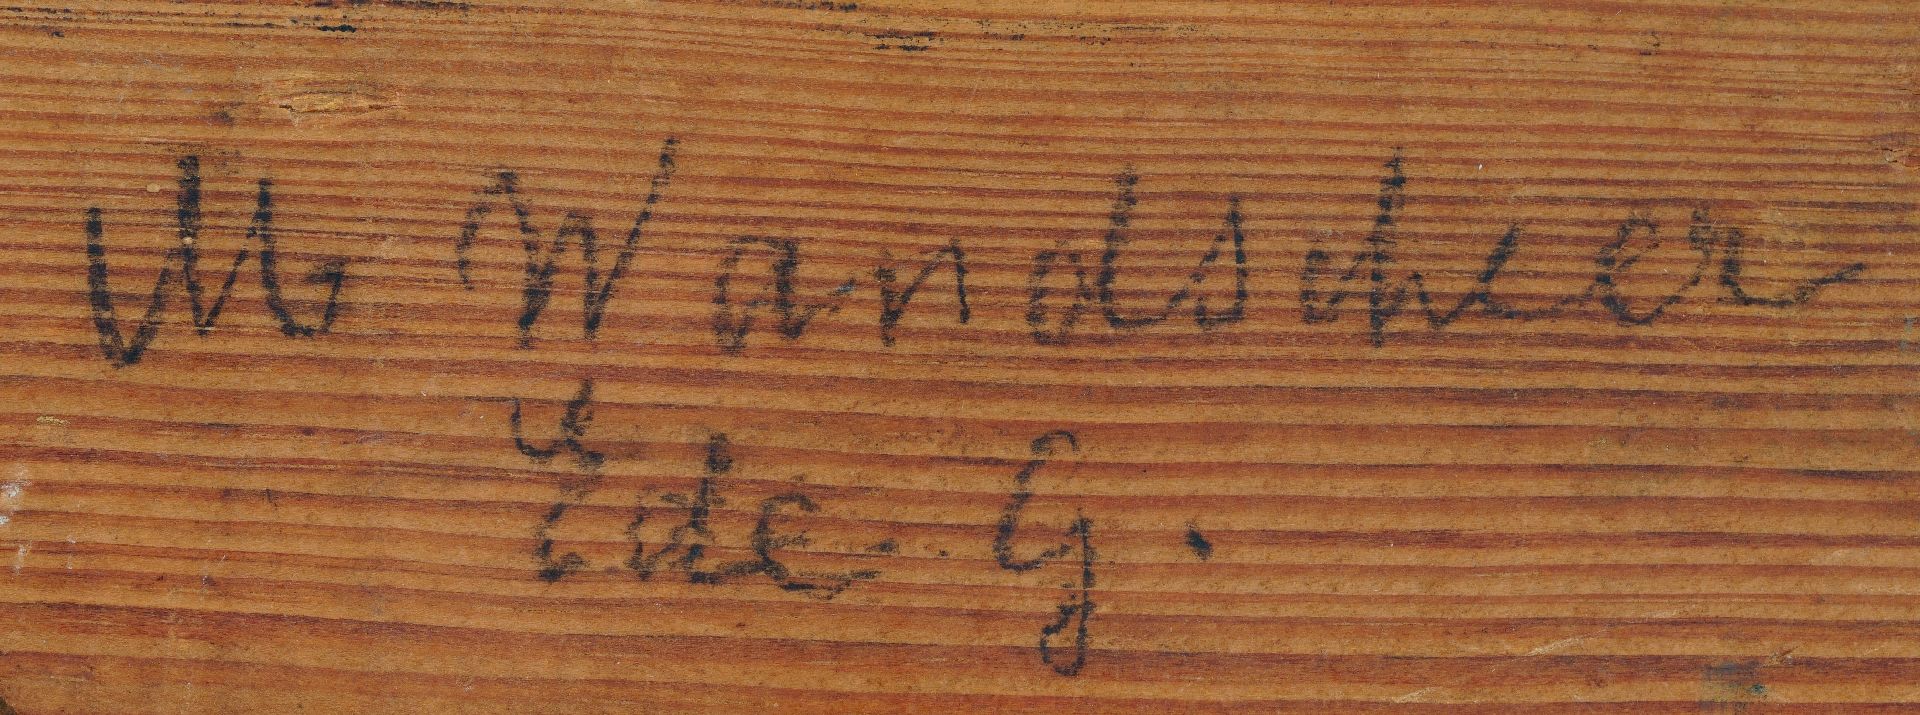 M Wandscheer
Ede. G.